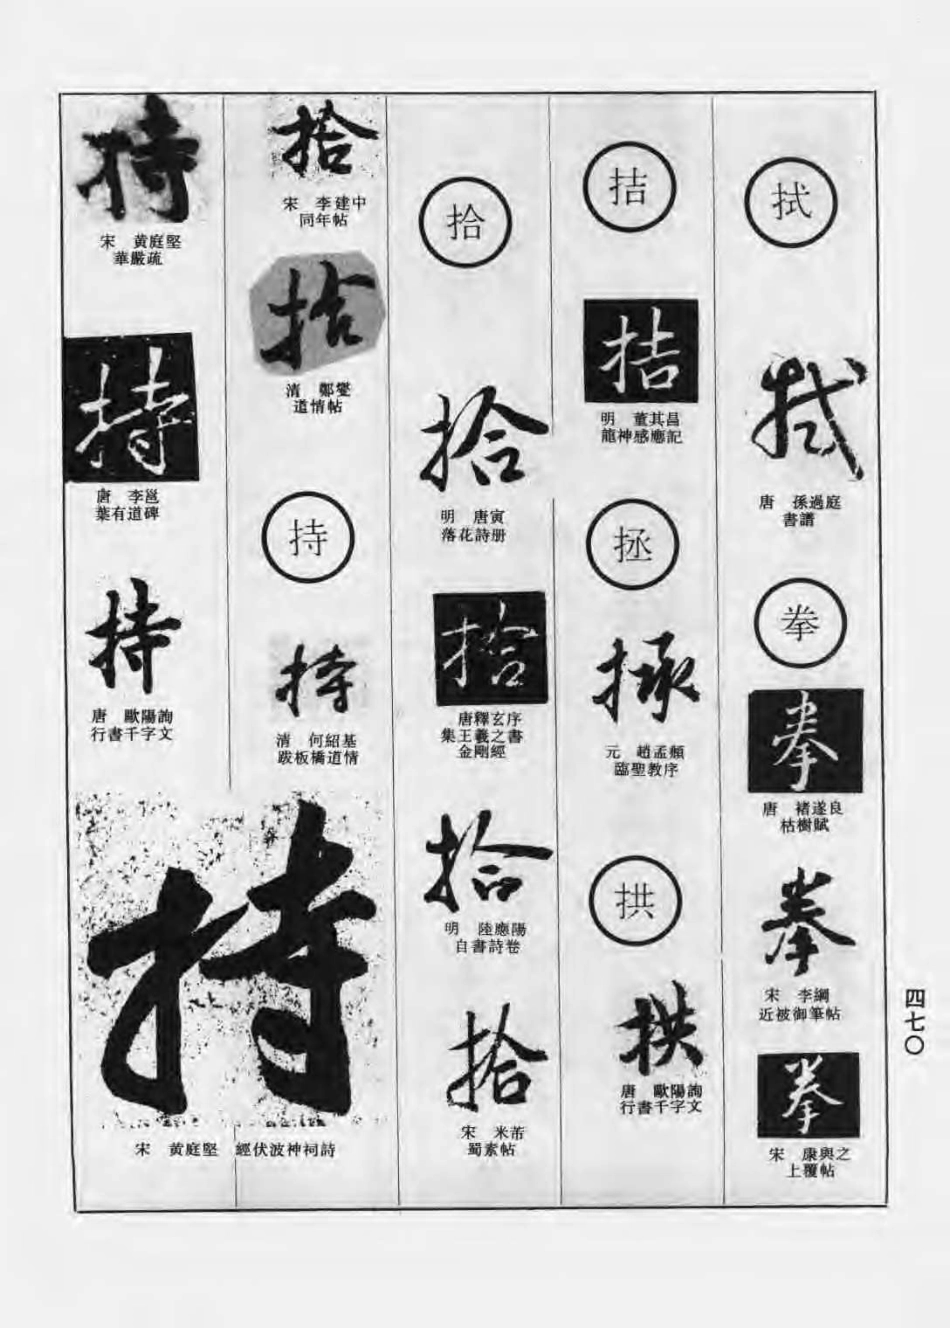 拭
拭
唐　孫過庭
書譜
拳
拳
唐　褚遂良
枯樹賦
拳
宋　李綱
近被御筆帖
拳
宋　康與之
上覆帖
拮
拮
明　董其昌
龍神感應記
拯
拯
元　趙孟頫
臨聖教序
拱
拱
唐　歐陽詢
行書千字文
拾
拾
明　唐寅
落花詩册
拾
唐釋玄序
集王羲之書
金剛經
拾
明　陸應陽
自書詩卷
拾
宋　米芾
蜀素帖
拾
宋　李建中
同年帖
拾
清　鄭燮
道情帖
持
持
清　何紹基
跋板橋道情
持
宋　黃庭堅　經伏波神祠詩
持
宋　黃庭堅
華嚴疏
持
唐　李邕
葉有道碑
持
唐　歐陽詢
行書千字文
四七〇